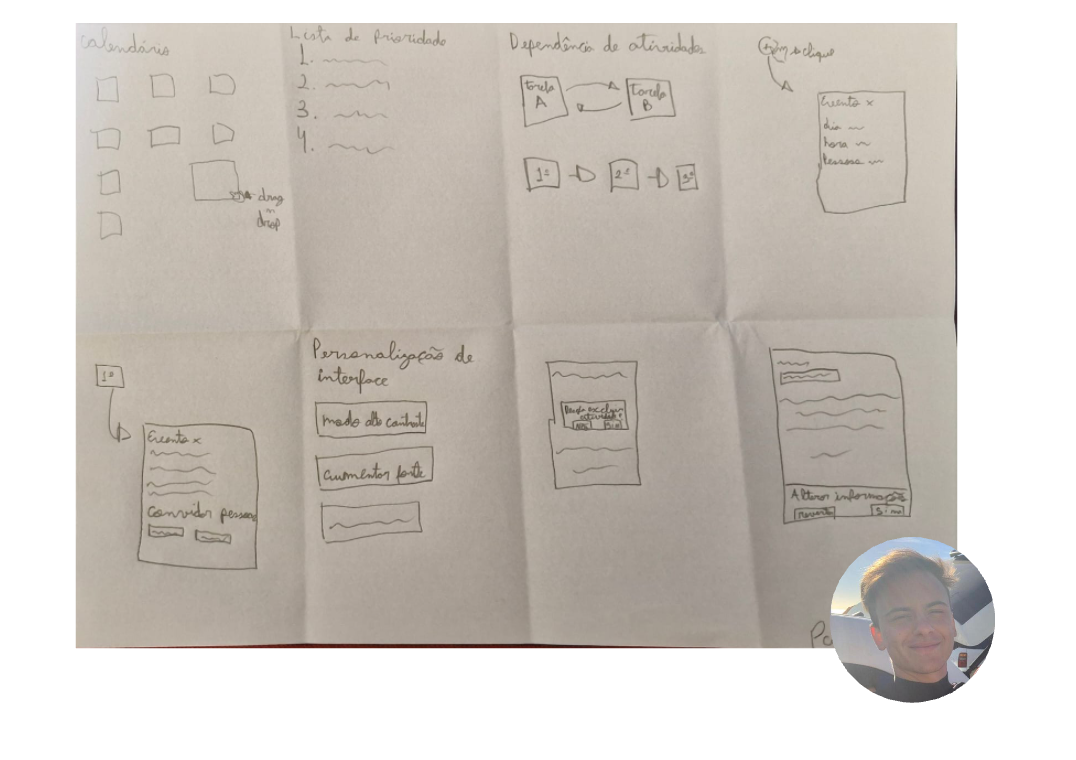 Calendário
drag
n
drop
Lista de prioridade
1.
2.
3.
4.
Dependência de atividades
tarefa
A
tarefa
B
1º
2º
3º
clique
Evento x
dia
hora
Pessoas
1º
Evento x
Convidar pessoas
Personalização de
interface
modo alto contraste
aumentar fonte
Deseja excluir
atividade?
Não
Sim
Alterar informação
Sim